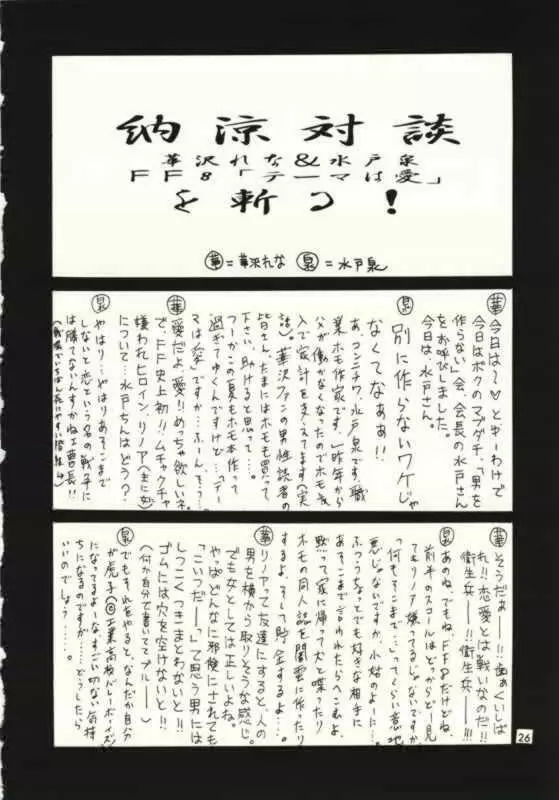 納涼対談
華沢れな&水戸泉
FF8「テーマは愛」
を斬る!
華=華沢れな 泉=水戸泉
華 今日は〜♡とゆーわけで
今日はボクのマブダチ、「男を
作らない」会、会長の水戸さん
をお呼びしました。
今日は、水戸さん。
泉 別に作らないワケじゃ
なくてなぁぁ!!
あ、コンニチワ、水戸泉です。職
業ホモ作家です。昨年から
父が働かなくなったのでホモ収
入で家計を支えてます(実
話)。華沢ファンの男性読者の
皆さん、たまにはホモも買って
下さい、助けると思って…。
つーかこの夏もホモ本作って
過ぎてゆくんですけど…「テー
マは愛」ですか…ふーん、そう…。
華 愛だよ、愛!!めちゃ欲しいネ。
で、FF史上初!!ムチャクチャ
嫌われヒロイン、リノア(主に女)
について…水戸さんはどう?
泉 やはり…やはりあそこまで
しないと恋という名の戦争に
は勝てないんすかね工曹長!!
華 そうだぁ——!!歯ぁくいしば
れ!!恋愛とは戦いなのだ!!
衛生兵——!!衛生兵——!!!
泉 あのね、でもね、FF8だけどね、
前半のスコールはどっからどー見
てもリノア嫌ってるじゃないですか。
「何もそこまで…」ってくらい意地
悪じゃないですか、小姑のように…。
ふつうちょっとでも好きな相手に
あそこまで言われたらへこむよ。
黙って家に帰って犬と喋ったり
ホモの同人誌を闇雲に作ったり
するよ。そして貯金するよ…。
華 リノアって友達にすると、人の
男を横から取りそうな感じ。
でも女としては正しいよね。
やっぱどんなに邪険にされても
「こいつだーっ」て思う男には
しつこくつきまとわないと!!
ゴムには穴を空けないと!!
(何か自分で書いててブルー——)
泉 でもそれをやると、なんだか自分
が虎子(©工業高校バレーボーイズ)
になってるよーな、すごい切ない気持
ちになるのですが…どっしたら
いいのでしょう……。
26